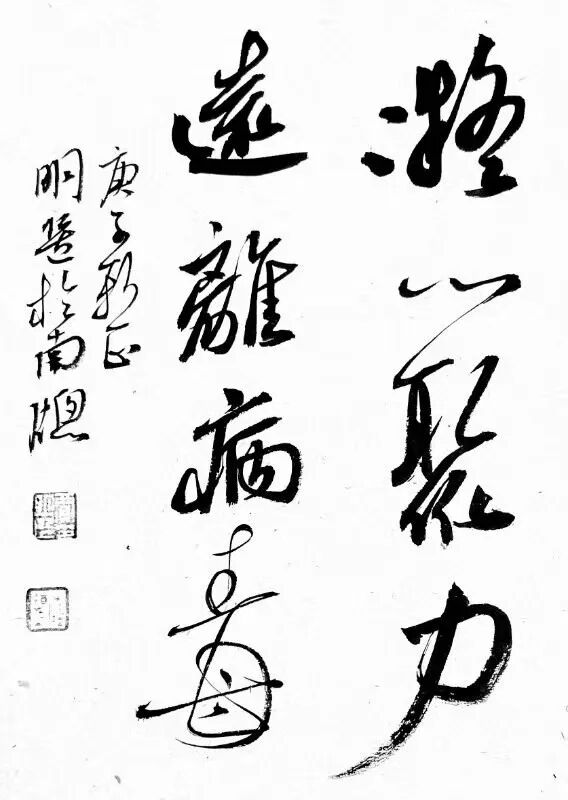 凝心聚力
遠離病毒
庚子新正
明𢡟於南牕